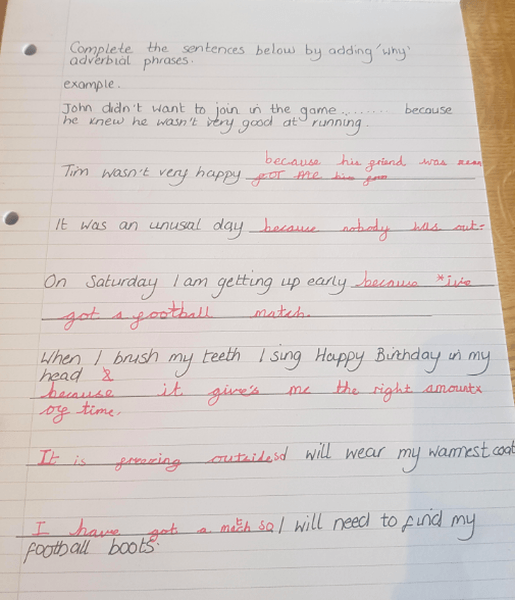 Complete the sentences below by adding 'why'
adverbial phrases.
example.
John didn't want to join in the game........ because
he knew he wasn't very good at running.
because his friend was
Tim wasn't very happy
It was an unusal day because nobody was out.
On Saturday I am getting up early because *ive
got a football match.
When I brush my teeth I sing Happy Birthday in my
head &
because it give's me the right amount
of time.
It is freezing outside so I will wear my warmest coat
I have got a match so I will need to find my
football boots.